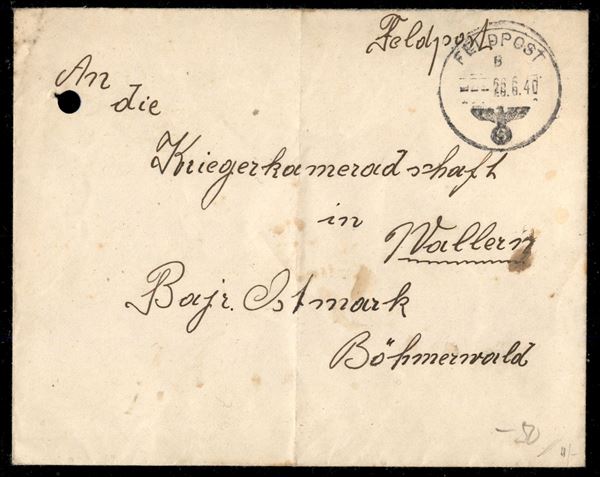 Feldpost
FELDPOST
B
26.6.40
An
die
Kriegerkameradschaft
in
Wallern
Bajr. Ostmark
Böhmerwald
-50